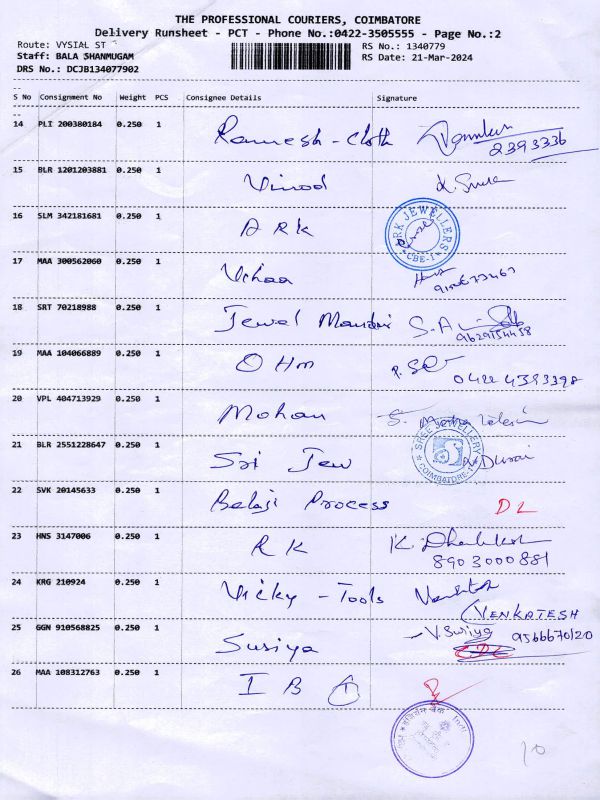 THE PROFESSIONAL COURIERS, COIMBATORE
Delivery Runsheet - PCT - Phone No.:0422-3505555 - Page No.:2
Route: VYSIAL ST
RS No.: 1340779
Staff: BALA SHANMUGAM
RS Date: 21-Mar-2024
DRS No.: DCJB134077902
S No Consignment No Weight PCS Consignee Details Signature
14 PLI 200380184 0.250 1 Ramesh - Cloth
2393336
15 BLR 1201203881 0.250 1 Vinod
16 SLM 342181681 0.250 1 A R K
RK JEWELLERS CBE-1
17 MAA 300562060 0.250 1
18 SRT 70218988 0.250 1 Jewel
9629154458
19 MAA 104066889 0.250 1 OHm
0422 4383398
20 VPL 404713929 0.250 1 Mohan
21 BLR 2551228647 0.250 1 Sri Jew Durai
SREE JEWELLERY COIMBATORE
22 SVK 20145633 0.250 1 Balaji Process DL
23 HNS 3147006 0.250 1 R K
8903000881
24 KRG 210924 0.250 1 Vicky - Tools
VENKATESH
25 GGN 910568825 0.250 1 Suriya V. Suriya
9566670120
26 MAA 108312763 0.250 1 I B
10